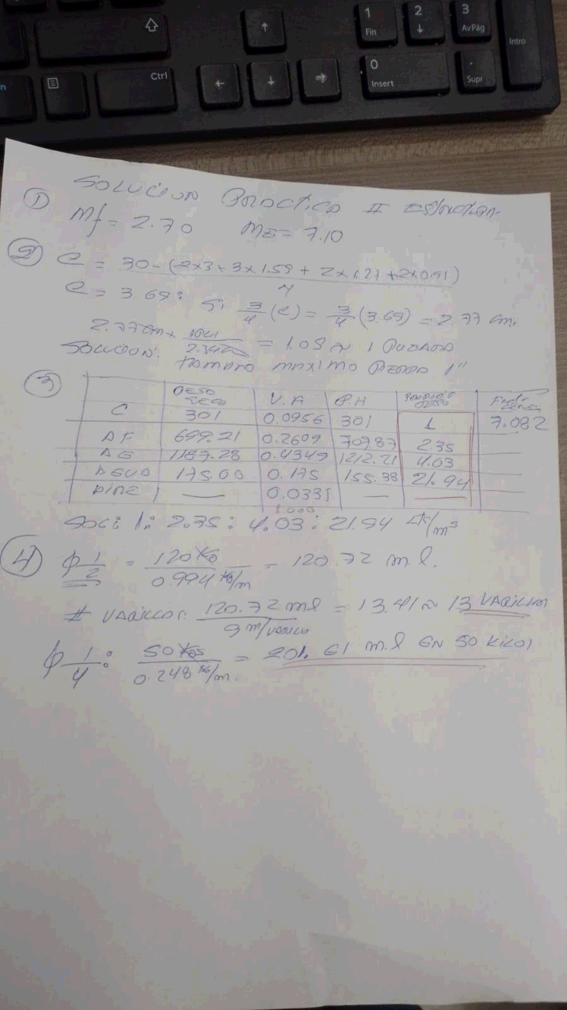 1 Fin
2 ↓
3 AvPág
Intro
Ctrl
0 Insert
. Supr
SOLUCION PRACTICA II
① Mf = 2.70 MG = 7.10
② e = 30 - (2x3 + 3x1.59 + 2x1.27 + 2x0.91)
e = 3.69: Si 3/4 (e) = 3/4 (3.69) = 2.77 cm.
2.77cm x = 1.09 ≈ 1 PULGADA
SOLUCION: TAMAÑO MAXIMO PIEDRA 1"
③ PESO SECO V.A P.H
C 301 0.0956 301 1 7.082
AF 699.21 0.2609 707.87 2.35
AG 1187.28 0.4349 1212.21 4.03
AGUA 175.00 0.175 155.38 21.94
AIRE — 0.0335 — —
1.000
SOL: 1: 2.35: 4.03: 21.94 Lt/m³
④ φ 1/2 = 120 Kg / 0.994 Kg/m = 120.72 ml.
# VARILLAS: 120.72 ml / 9 m/varilla = 13.41 ≈ 13 VARILLAS
φ 1/4: 50 Kgs / 0.248 Kg/m. = 201.61 m.l EN 50 KILOS